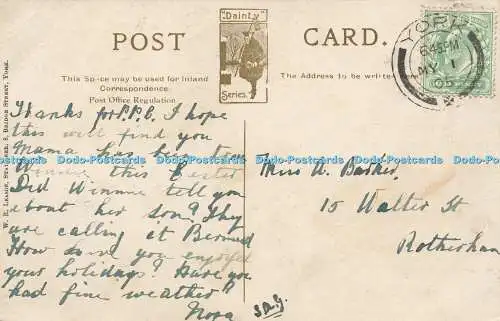 POST CARD.
"Dainty"
Series.
This Space may be used for Inland
Correspondence.
Post Office Regulation
The Address to be written
YORK
6.45PM
MY 1
05
W. R. Leadie, Stationer, 8, Bridge Street, York.
Thanks for P.P.C. I hope
this will find you
Mama has been to
Winnie this Easter
Did Winnie tell you
about her son? They
are calling it Bernard
How have you enjoyed
your holidays? Have you
had fine weather?
Nora
Miss A. Barker,
15 Walter St
Rotherham
Dodo-Postcards Dodo-Postcards Dodo-Postcards Dodo-Postcards Dodo-Postcards